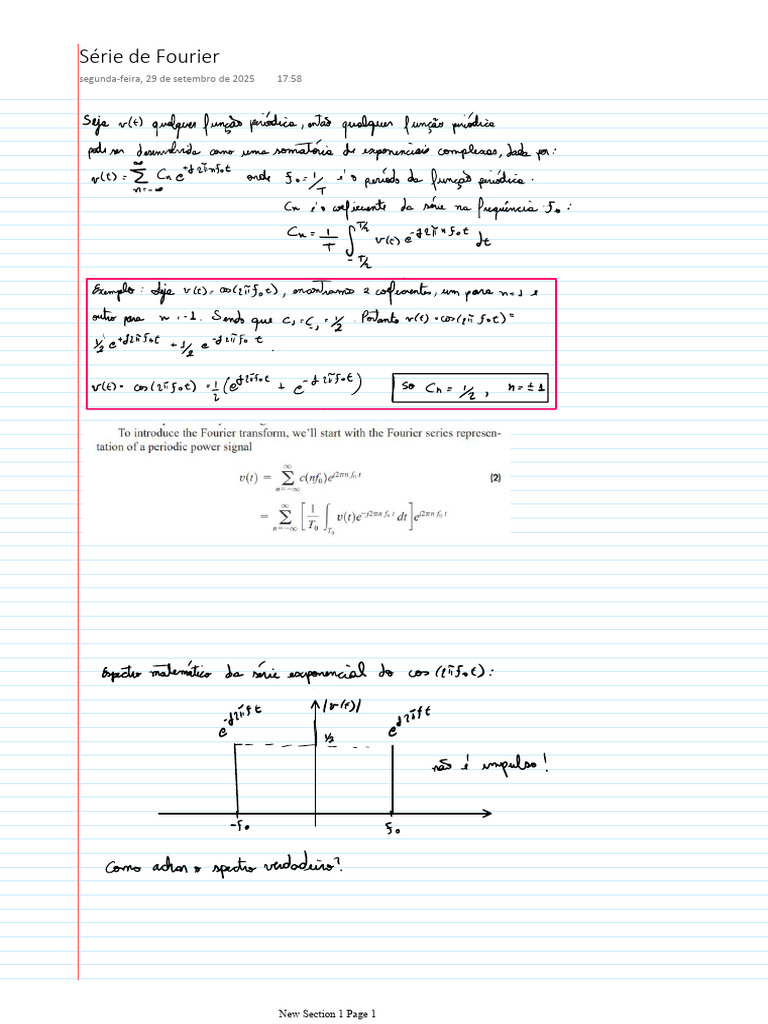 Série de Fourier
segunda-feira, 29 de setembro de 2025 17:58
Seja v(t) qualquer função periódica, então qualquer função periódica
pode ser desenvolvida como uma somatória de exponenciais complexas, dada por:
v(t) = ∑_{n=-∞}^{∞} Cn e^{+j2πnf₀t} onde f₀ = 1/T é o período da função periódica.
Cn é o coeficiente da série na frequência f₀:
Cn = 1/T ∫_{-T/2}^{T/2} v(t) e^{-j2πnf₀t} dt
Exemplo: Seja v(t) = cos(2πf₀t), encontramos 2 coeficientes, um para n=1 e
outro para n=-1. Sendo que c₁ = c₋₁ = 1/2. Portanto v(t) = cos(2πf₀t) =
1/2 e^{+j2πf₀t} + 1/2 e^{-j2πf₀t}.
v(t) = cos(2πf₀t) = 1/2 (e^{j2πf₀t} + e^{-j2πf₀t}) so Cn = 1/2, n = ±1
To introduce the Fourier transform, we'll start with the Fourier series represen-
tation of a periodic power signal
v(t) = ∑_{n=-∞}^{∞} c(nf₀)e^{j2πn f₀ t} (2)
= ∑_{n=-∞}^{∞} [1/T₀ ∫_{T₀} v(t)e^{-j2πn f₀ t} dt] e^{j2πn f₀ t}
Espectro matemático da série exponencial do cos(2πf₀t):
e^{-j2πft} |v(f)| e^{j2πft}
1/2
não é impulso!
-f₀ f₀
Como achar o spectro verdadeiro?
New Section 1 Page 1